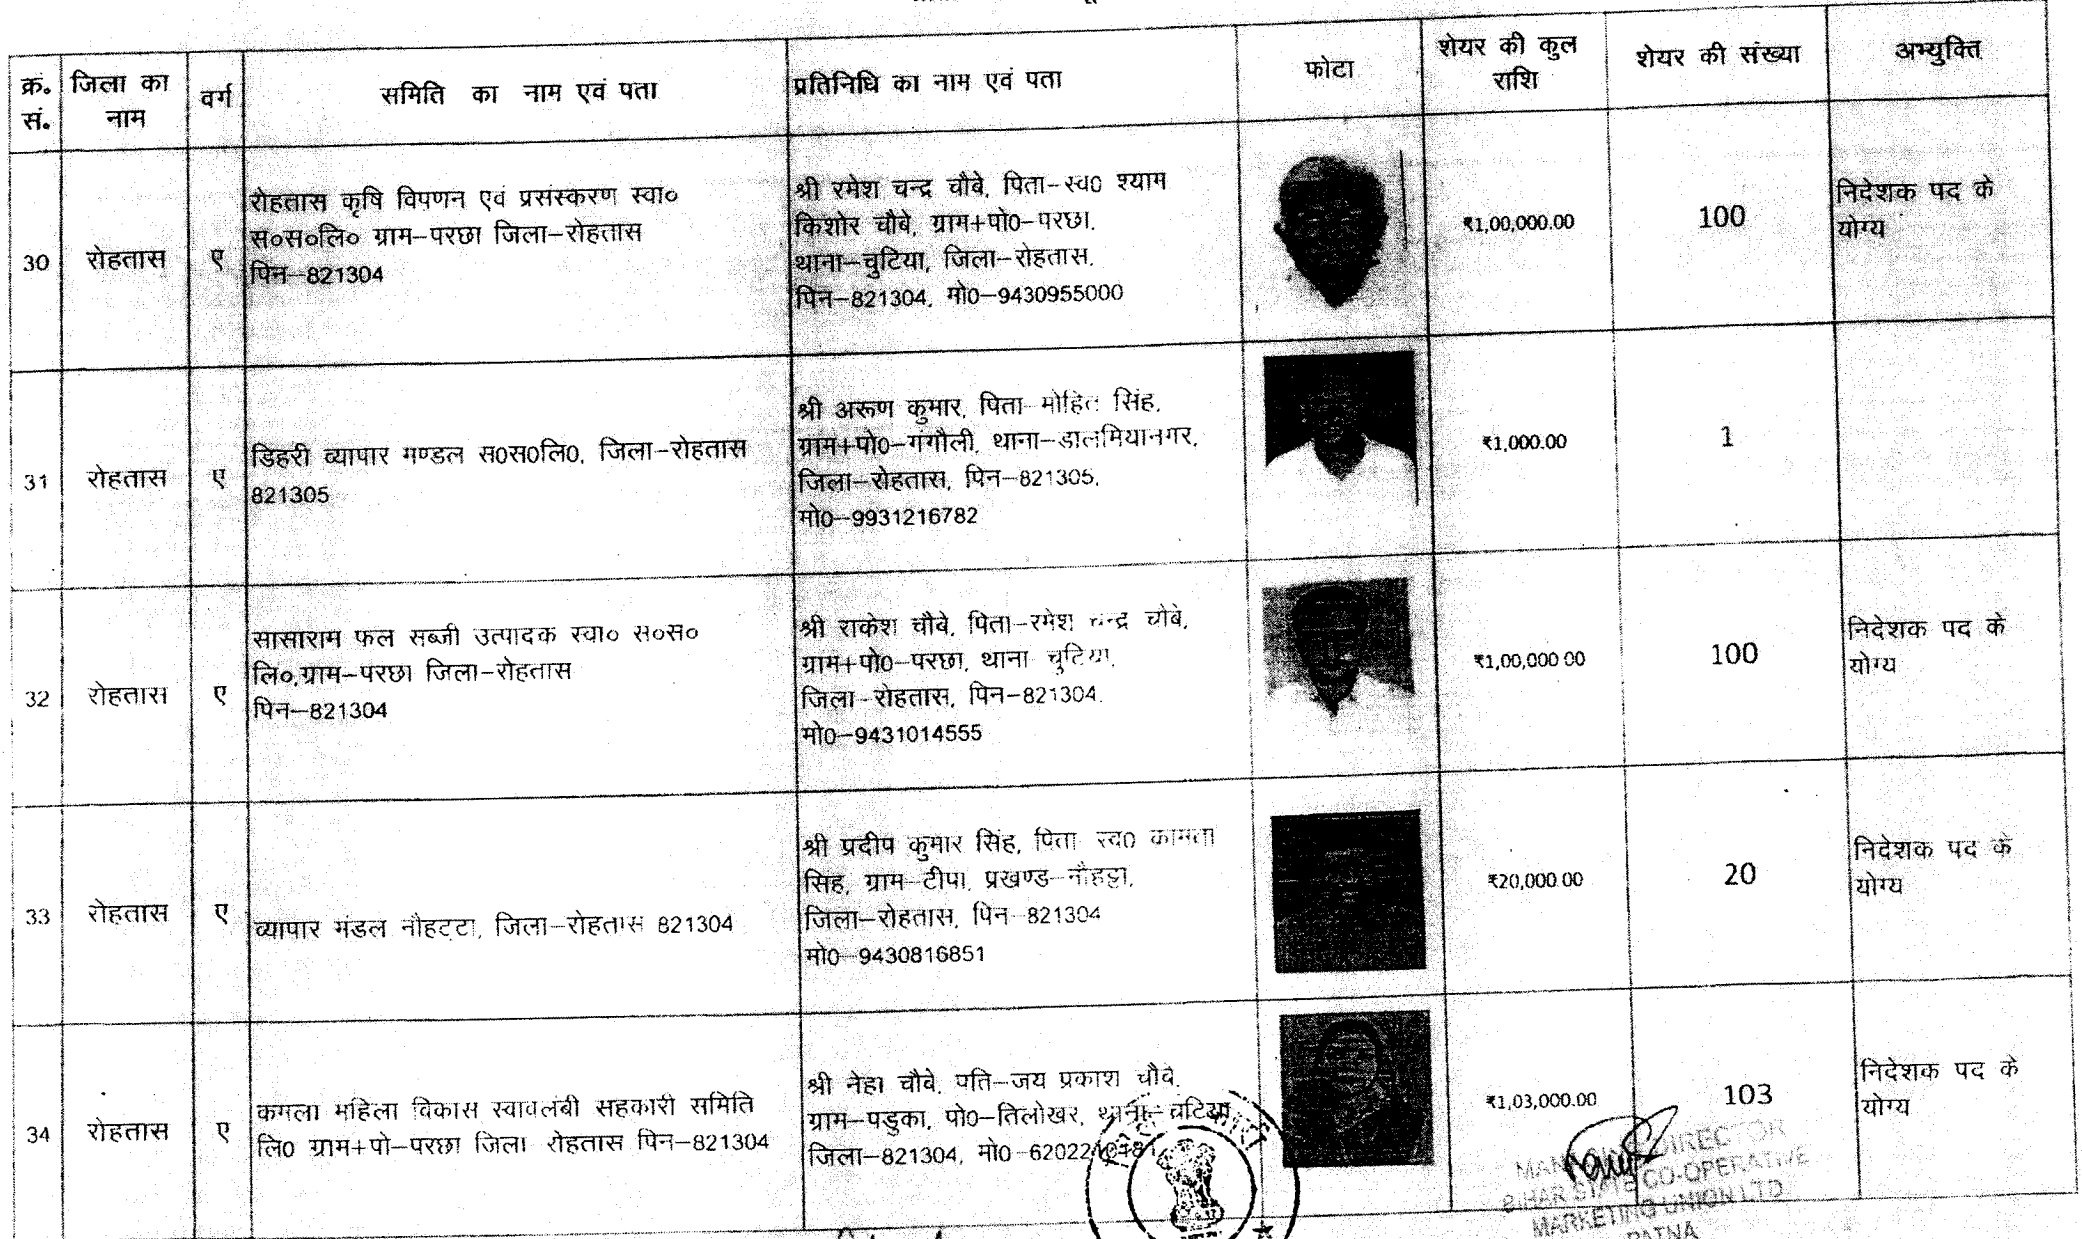 क्रं. सं.
जिला का नाम
वर्ग
समिति का नाम एवं पता
प्रतिनिधि का नाम एवं पता
फोटा
शेयर की कुल राशि
शेयर की संख्या
अभ्युक्ति
30
रोहतास
ए
रोहतास कृषि विपणन एवं प्रसंस्करण स्वा०
स०स०लि० ग्राम–परछा जिला–रोहतास
पिन–821304
श्री रमेश चन्द्र चौबे, पिता–स्व0 श्याम
किशोर चौबे, ग्राम+पो0–परछा,
थाना–चुटिया, जिला–रोहतास,
पिन–821304, मो0–9430955000
₹1,00,000.00
100
निदेशक पद के
योग्य
31
रोहतास
ए
डिहरी व्यापार मण्डल स0स0लि0, जिला–रोहतास
821305
श्री अरूण कुमार, पिता मोहित सिंह,
ग्राम+पो0–गंगौली, थाना–डालमियानगर,
जिला–रोहतास, पिन–821305,
मो0–9931216782
₹1,000.00
1
32
रोहतास
ए
सासाराम फल सब्जी उत्पादक स्वा० स०स०
लि०,ग्राम–परछा जिला–रोहतास
पिन–821304
श्री राकेश चौबे, पिता–रमेश चन्द्र चौबे,
ग्राम+पो0–परछा, थाना चुटिया,
जिला–रोहतास, पिन–821304,
मो0–9431014555
₹1,00,000.00
100
निदेशक पद के
योग्य
33
रोहतास
ए
व्यापार मंडल नौहट्टा, जिला–रोहतास 821304
श्री प्रदीप कुमार सिंह, पिता स्व0 कामता
सिंह, ग्राम–टीपा, प्रखण्ड–नौहट्टा,
जिला–रोहतास, पिन–821304
मो0–9430816851
₹20,000.00
20
निदेशक पद के
योग्य
34
रोहतास
ए
कमला महिला विकास स्वावलंबी सहकारी समिति
लि0 ग्राम+पो–परछा जिला रोहतास पिन–821304
श्री नेहा चौबे, पति–जय प्रकाश चौबे,
ग्राम–पडुका, पो0–तिलोखर, थाना–चुटिया,
जिला–821304, मो0
₹1,03,000.00
103
निदेशक पद के
योग्य
DIRECTOR
BIHAR STATE CO-OPERATIVE
MARKETING UNION LTD
PATNA